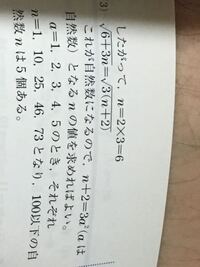 したがって，n＝2×3＝6
3) √6＋3n＝√3(n＋2)
これが自然数になるので，n＋2＝3a²(aは
自然数）となるnの値を求めればよい。
a＝1，2，3，4，5のとき，それぞれ
n＝1，10，25，46，73となり，100以下の自
然数nは5個ある。